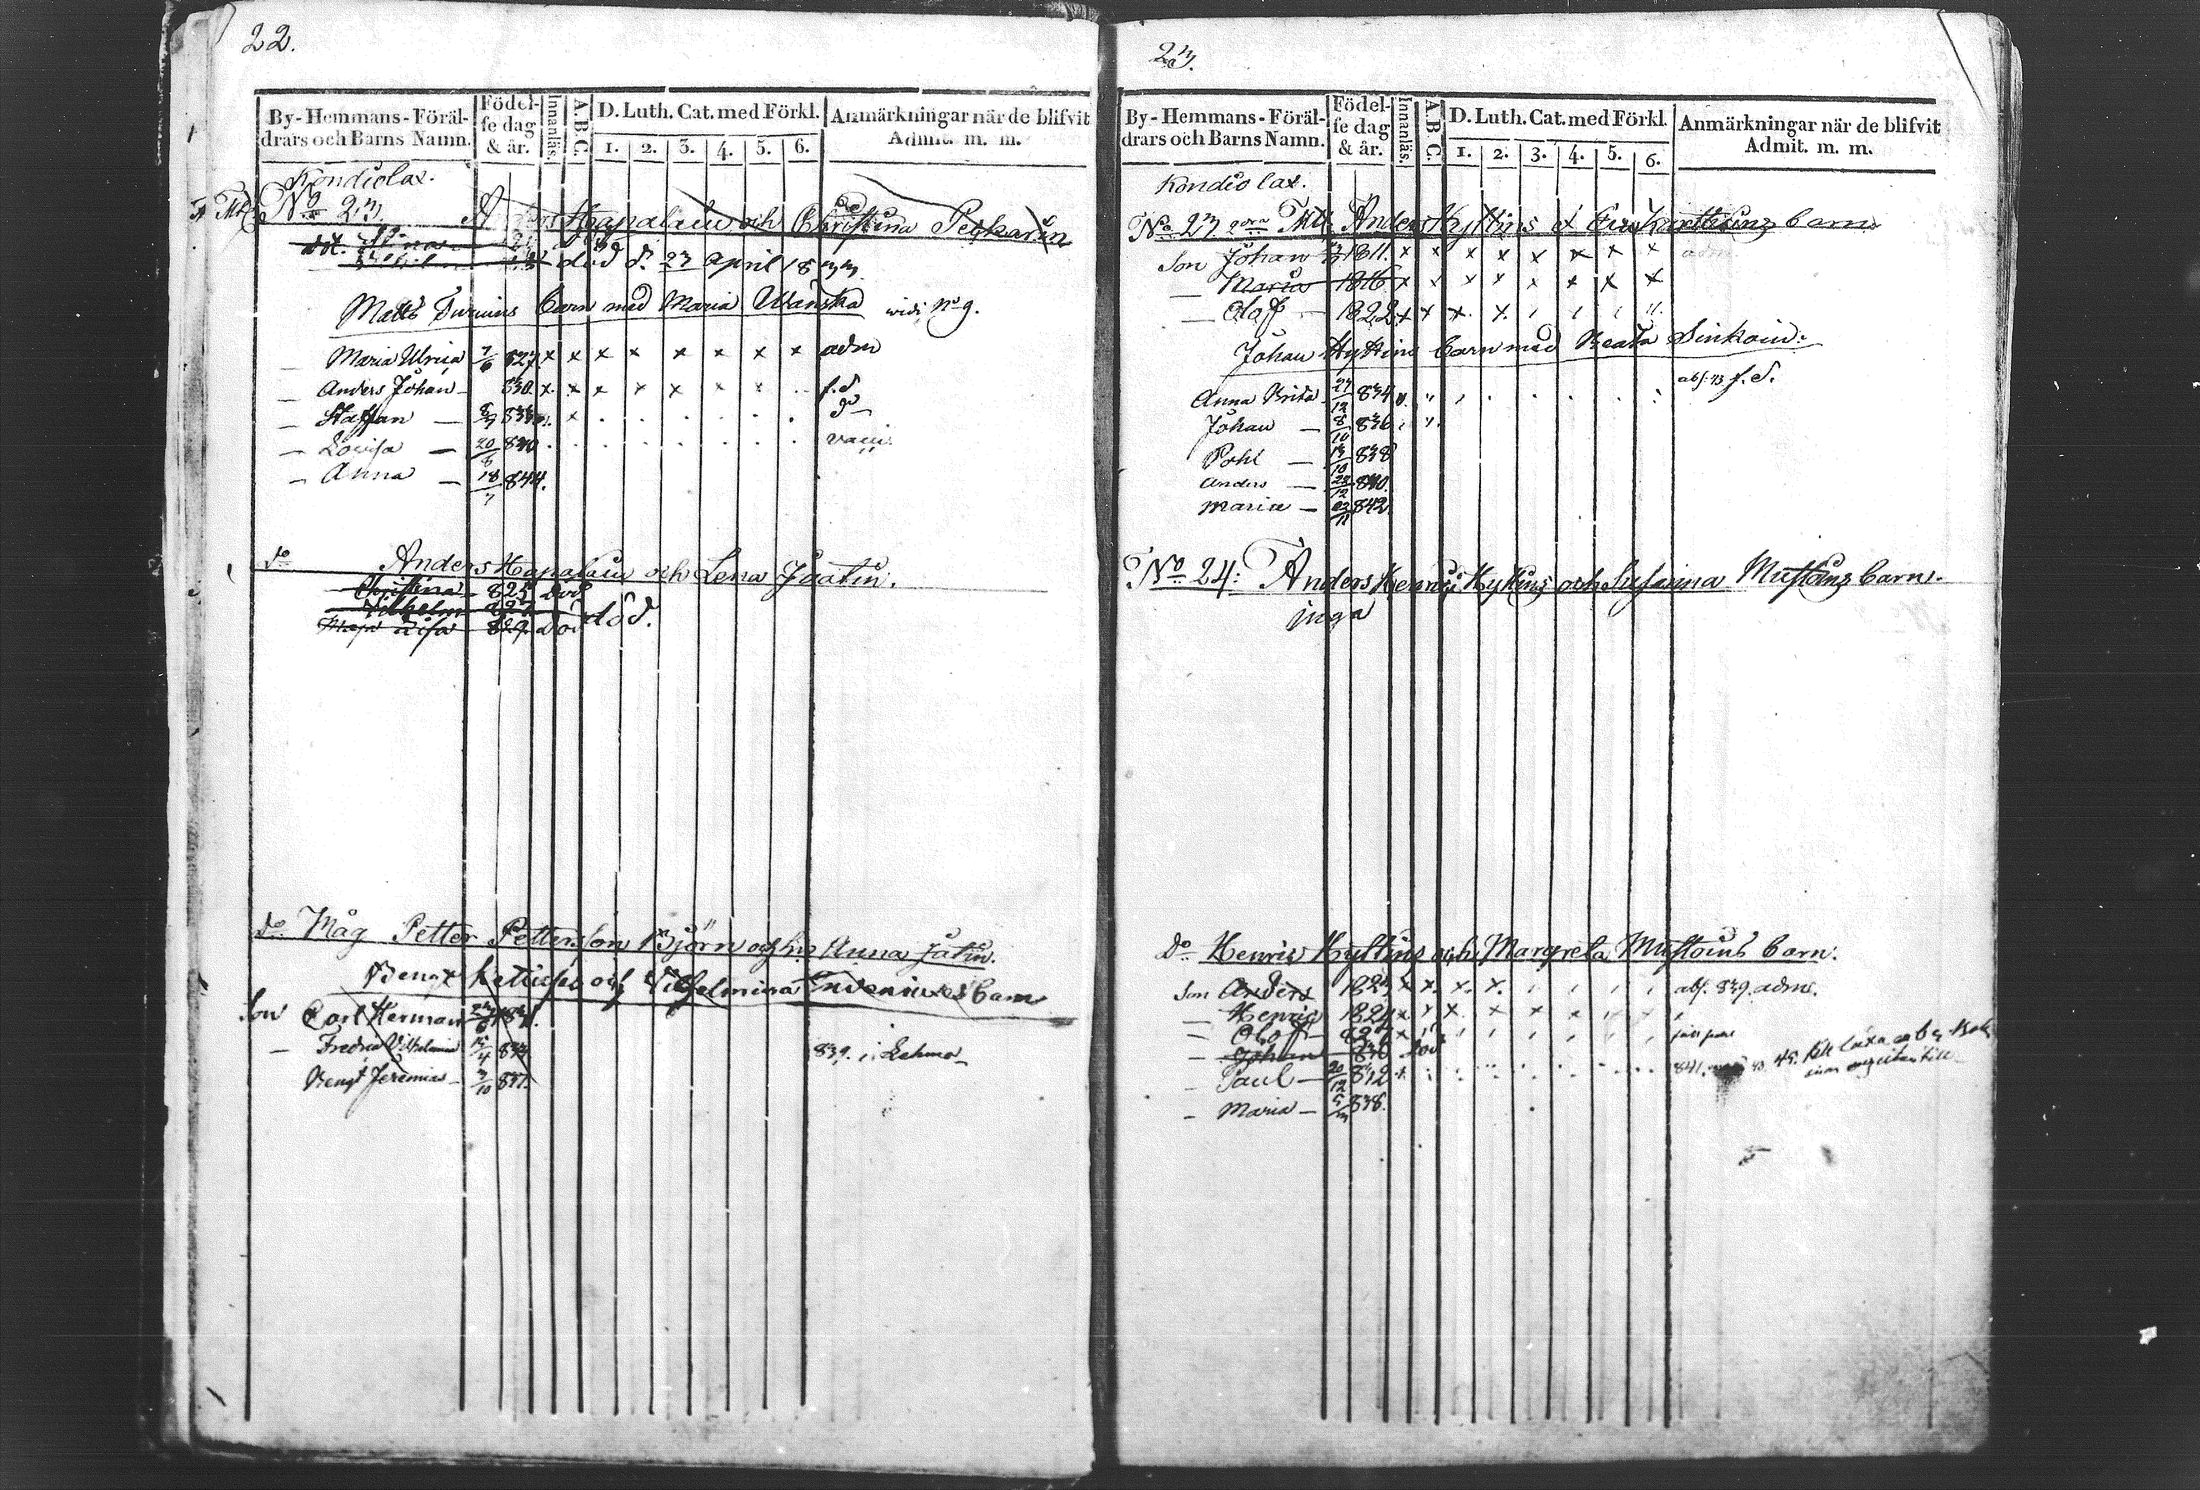 22.
By-Hemmans-Föräl-
drars och Barns Namn.
Födel-
se dag
& år.
Innanläs.
A.B.C.
D. Luth. Cat. med Förkl.
1. 2. 3. 4. 5. 6.
Anmärkningar när de blifvit
Admit. m. m.
Kondiolax.
No 23. Hapalain och Christina
död d. 23 april 1833
Matts Turuins barn med Maria Wänska widi No 9.
Maria Ulrica 7/6 827. x x x x x x x x adm
— Anders Johan — 830. x x x x x x x f.d.
— Staffan — 835 x
— Lovisa — 20/8 840 vacci.
— Anna — 18/7 844.
do Anders Hapalain och Lena Jäatin.
Christina — 825 död
Vilhelm 827 död.
Maja Lisa — 829. död
do Måg Petter Pettersson Björn och h. Anna Jätin.
Bengt och Vilhelmina barn
Son Carl Herman
— Fredric Vilhelm 15/4 839. i Lehmo
Bengt Jeremias — 3/10 837.
23.
By-Hemmans-Föräl-
drars och Barns Namn.
Födel-
se dag
& år.
Innanläs.
A.B.C.
D. Luth. Cat. med Förkl.
1. 2. 3. 4. 5. 6.
Anmärkningar när de blifvit
Admit. m. m.
Kondiolax.
No 23 Anders Hyttins & barn
Son Johan 1811. x x x x x x x x adm.
— Maria 1816 x x x x x x x x
— Olof — 1822 x x x x
Johan Hyttins barn med Beata Sinkoin:
Anna Brita 27/12 834 abs. 43 f.d.
Johan — 8/10 836
Pohl — 838
Anders — 28/12 840.
Maria — 842.
No 24: Anders Henric Hyttins och Susanna Mustoins barn.
inga
do Henric Hyttins och Margreta Mustoins barn.
Son Anders 1823 x x x x abs. 839. adm.
— Henric 1824 x x x x x x
— Olof — 827
— Johan — 830 död
— Paul — 20/12 832 841.
— Maria — 5/3 838.